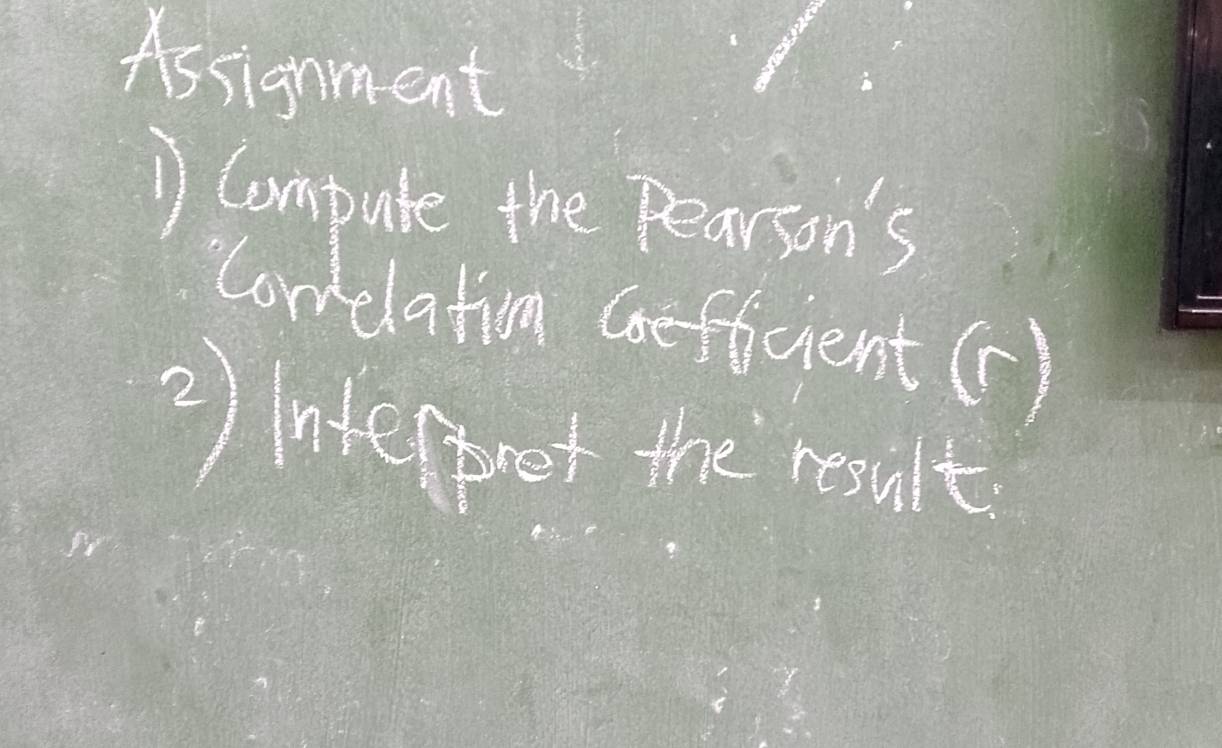 Assignment
1) Compute the Pearson's
Correlation Coefficient (r)
2) Interpret the result.